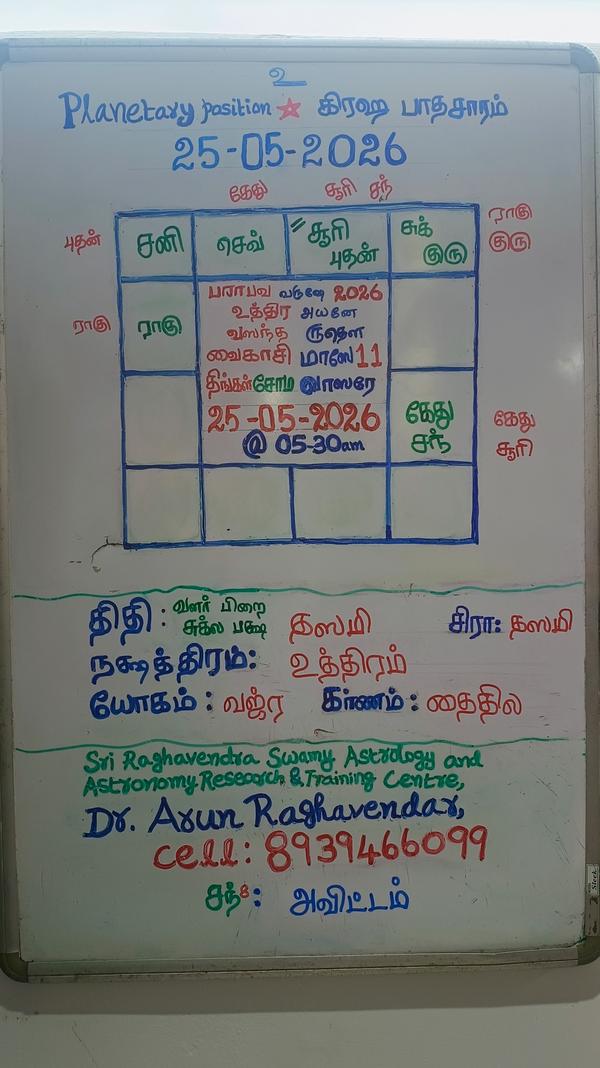 உ
Planetary position ☆ கிரஹ பாதசாரம்
25-05-2026
கேது சூரி சந்
புதன் சனி செவ் "சூரி புதன் சுக் குரு ராகு குரு
பராபவ வருஷே 2026
உத்திர அயனே
ராகு ராகு வஸந்த ருதௌ
வைகாசி மாஸே 11
திங்கள் சோம வாஸரே
25-05-2026
@ 05-30am
கேது சந் கேது சூரி
திதி : வளர் பிறை சுக்ல பக்ஷ தஸமி சிரா: தஸமி
நக்ஷத்திரம்: உத்திரம்
யோகம் : வஜ்ர கரணம் : தைதில
Sri Raghavendra Swamy Astrology and
Astronomy Research & Training Centre,
Dr. Arun Raghavendar,
cell: 8939466099
சந் 8 : அவிட்டம்